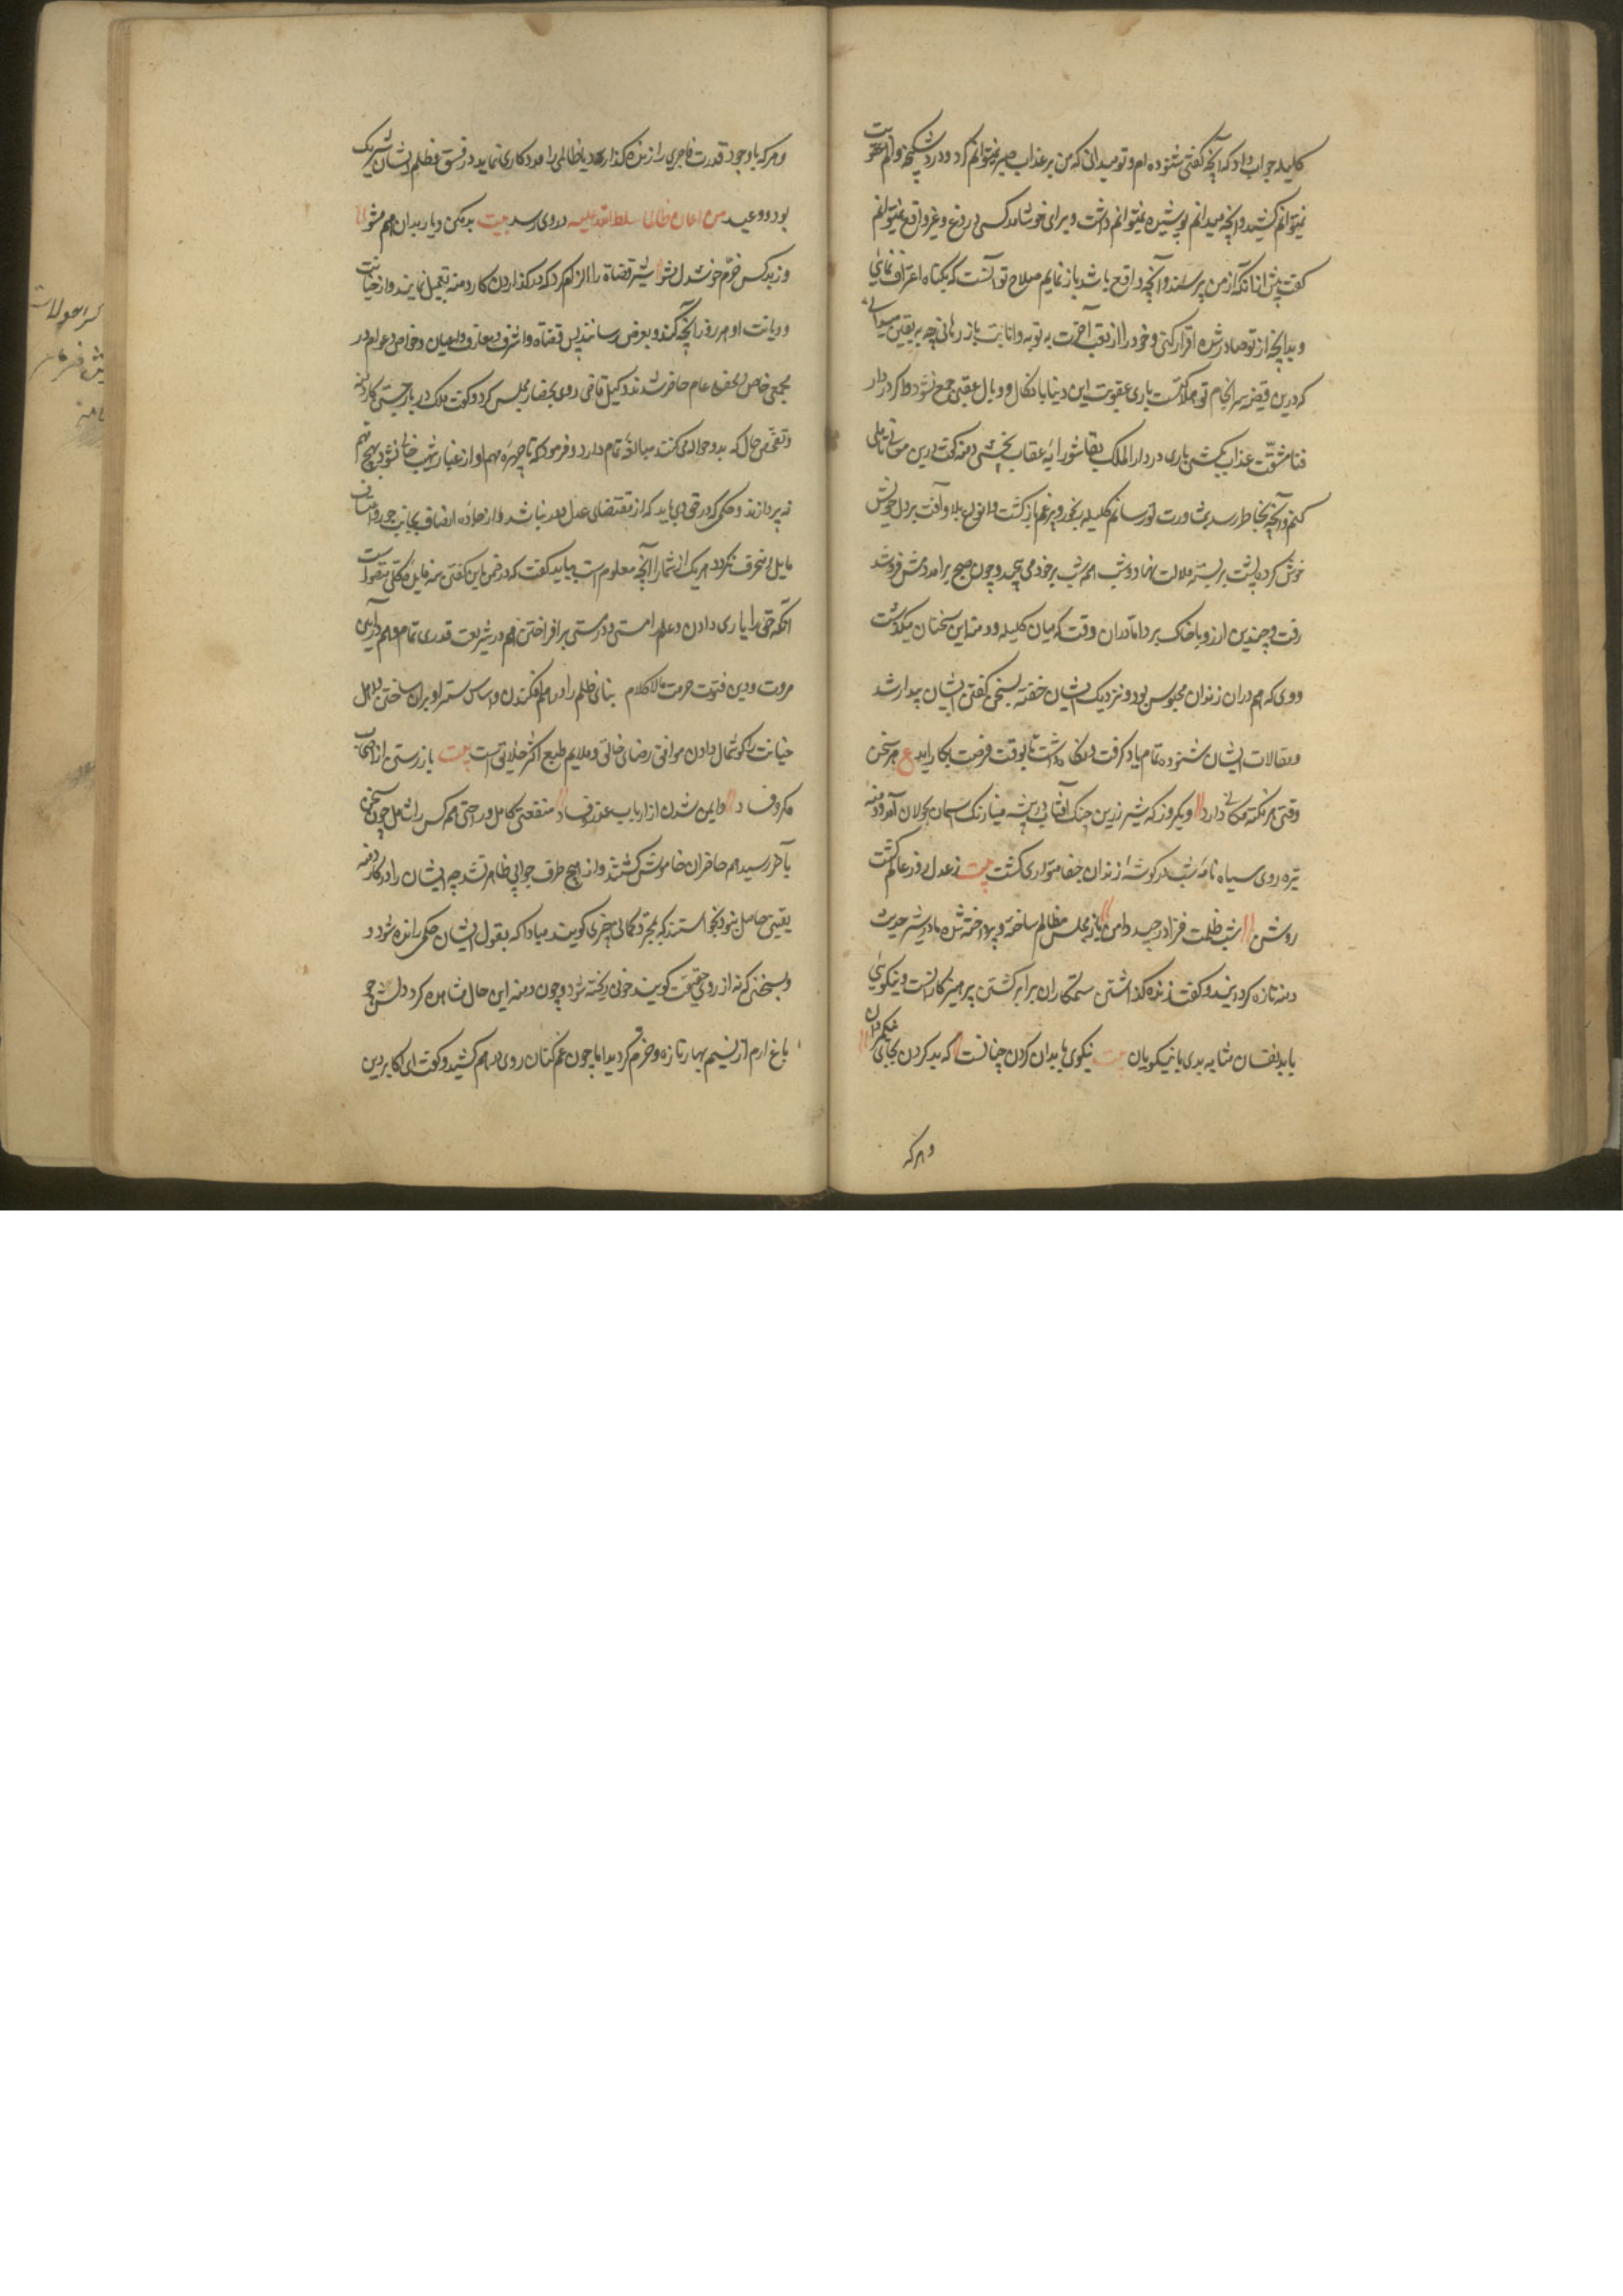 کلیله جواب داد که آنچه گفتی شنوده ام و تو میدانی که من بر عذاب صبر نمیتوانم کرد و در شکنجه و الم عقوبت
نمیتوانم کشید و آنچه میدانم پوشیده نمیتوانم داشت و برای خوشامد کسی دروغ و غیر واقع نمیتوانم
گفت پیش از آنکه از من پرسند و آنچه واقع باشد باز نمایم صلاح تو آنست که بگناه اعتراف نمائی
و بدانچه از تو صادر شده اقرار کنی و خود را از تعب آخرت به توبه و انابت باز رهانی چه به یقین میدانی
که درین قضیه سرانجام تو هلاکست باری عقوبت این دنیا با نکال و وبال عقبی جمع نشود و اگر در دار
فنا مشقت عذاب بکشی باری در دار الملک بقا شورابه عقاب نچشی دمنه گفت درین معانی تاملی
کنم و آنچه بخاطر رسد بمشاورت تو رسانم کلیله رنجور و پرغم بازگشت و انواع بلا و آفت بر دل خویش
خوش کرده پشت بر بستر ملالت نهاد و شب همه شب بر خود می پیچید و چون صبح برامد دمش فرو شد
رفت و چندین آرزو با خاک برد اما دران وقت که میان کلیله و دمنه این سخنان میگذشت
ددی که هم دران زندان محبوس بود و نزدیک ایشان خفته بسخن گفتن ایشان بیدار شد
و مقالات ایشان شنوده تمام یاد گرفت و نگاه داشت تا بوقت فرصت بکار آید ع هر سخن
وقتی هر نکته مکانی دارد و دیگر روز که شیر زرین چنگ آفتاب در بیشه مینا رنگ آسمان بجولان آمد و دمنه
تیره روی سیاه نامه شب در گوشه زندان خفا متواری گشت بیت ز عدل روز عالم گشت
روشن شب ظلمت فزا درچید دامن باز مجلس مظالم ساخته و پرداخته شده مادر شیر حدیث
دمنه تازه گردانید و گفت زنده گذاشتن ستمگاران برابر کشتن پرهیزگارانست و نیکویی
با بدنفسان بمثابه بدی با نیکویان بیت نیکوی با بدان کردن چنانست که بد کردن بجای نیکمردان
و هر که
و هر که با وجود قدرت فاجری را زنده گذارد یا ظالمی را مددکاری نماید در فسق و ظلم ایشان شریک
بود و وعید من اعان ظالما سلطه الله علیه در وی رسد بیت بد مکن و یار بدان هم مشو
وز بد کس خرم و خوشدل مشو شیر قضاة را الزام کرد که در گذاردن کار دمنه تعجیل نمایند و از خیانت
و دیانت او هر روز آنچه گذرد بعرض رسانند پس قضاة و اشراف و معارف و اعیان و خواص و عوام در
مجمعی خاص و محفلی عام حاضر شدند وکیل قاضی روی بحضار مجلس کرد و گفت ملک در باز جستن کار دمنه
و تفحص حال که بدو حواله می کنند مبالغه تمام دارد و فرموده که تا چهره مهم او از غبار شبهت خالی نشود بهیچ مهم
نه پردازند و حکمی که در حق وی باید که از مقتضای عدل دور نباشد و از جاده انصاف بجانب جور و اعتساف
مایل و منحرف نگردد هر یک از شما را آنچه معلوم است بباید گفت که در ضمن این گفتن سه فایده کلی متصور است
آنکه حق را یاری دادن و علم راستی و درستی برافراختن هم در شریعت قدری تمام و هم در آیین
مروت و دین فتوت حرمت مالاکلام بنای ظلم را درهم افکندن و اساس ستم را ویران ساختن و اهل
خیانت را گوشمال دادن موافق رضای خالق و ملایم طبع اکثر خلایق است بیت باز رستن از اصحاب
مکر و فساد و ایمن شدن از ارباب غدر و فساد منفعتی کامل و راحتی همه کس را شامل چون سخن
بآخر رسید همه حاضران خاموش گشتند و از هیچ طرف جوابی ظاهر نشد چه ایشان را در کار دمنه
یقینی حاصل نبود نخواستند که بمجرد گمانی چیزی گویند مبادا که بقول ایشان حکمی رانده شود و
و بسخنی که نه از روی حقیقت گویند خونی ریخته شود و چون دمنه این حال مشاهده کرد دلش چو
باغ ارم از نسیم بهار تازه و خرم گردید اما چون غمگنان روی درهم کشید و گفت ای اکابر دین